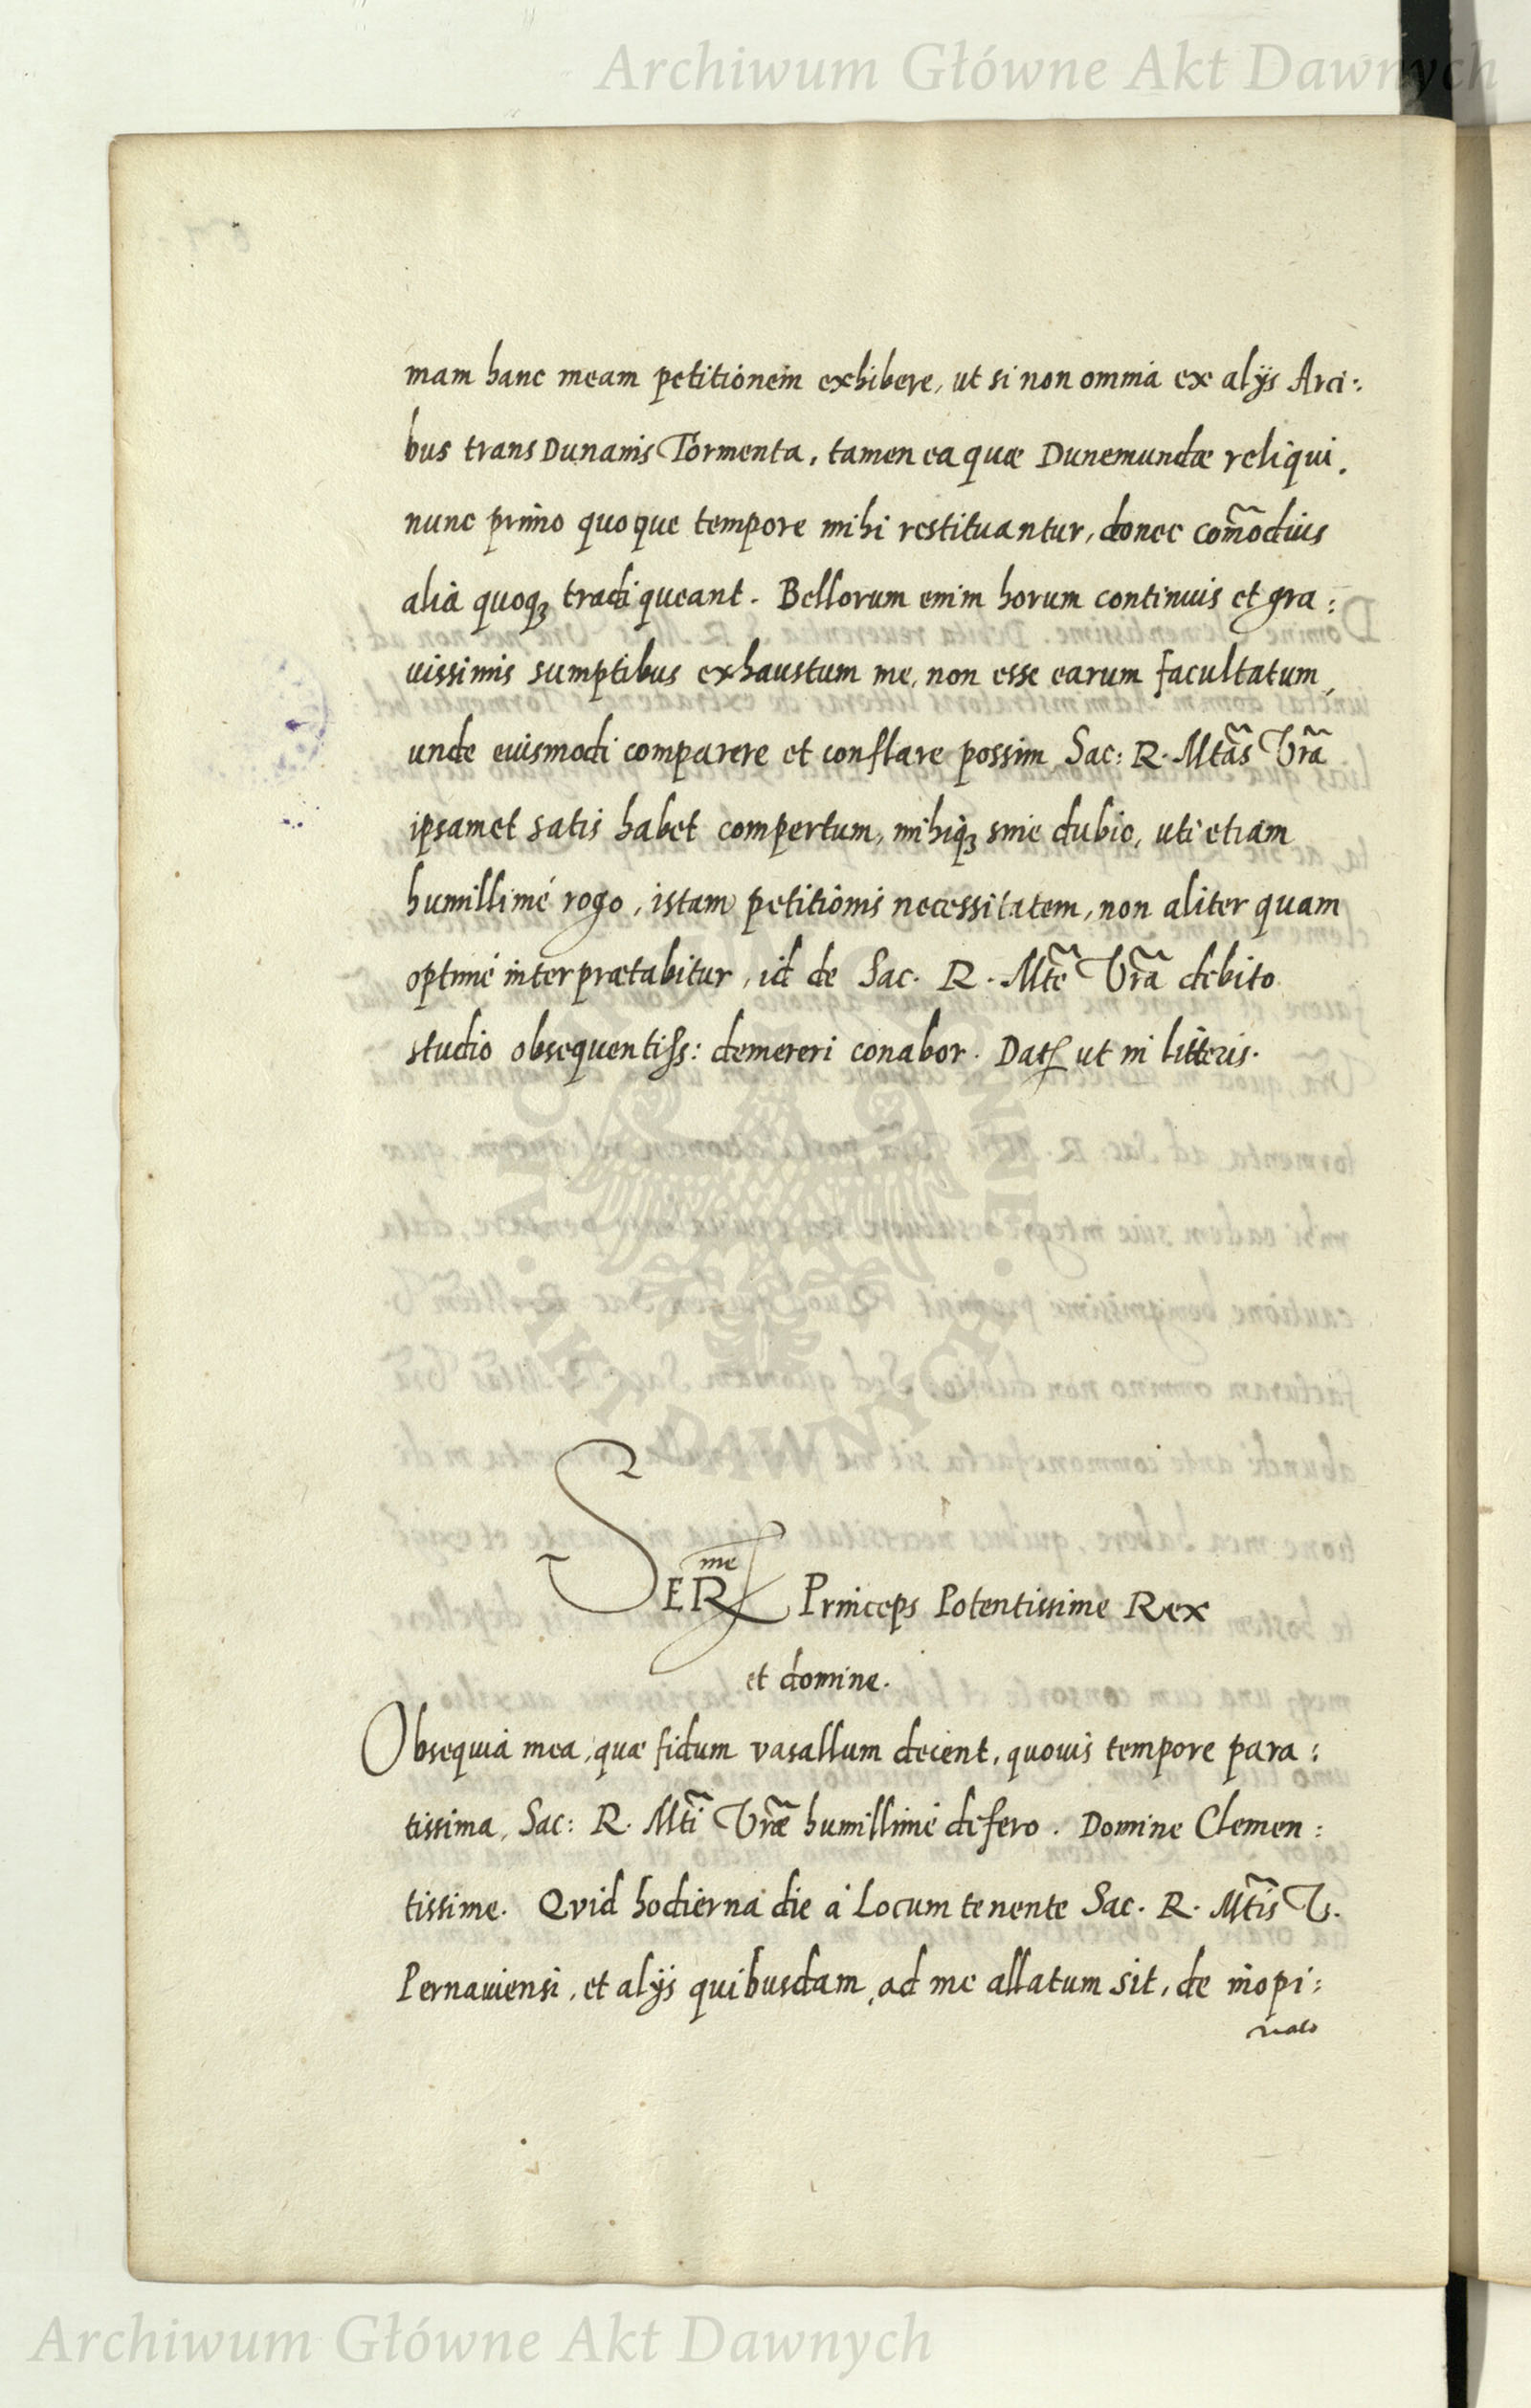 Archiwum Główne Akt Dawnych
mam hanc meam petitionem exhibere, ut si non omnia ex alijs Arci:
bus trans Dunanis Tormenta, tamen ea quæ Dunemundæ reliqui,
nunc primo quoque tempore mihi restituantur, donec com̃odius
alia quoqꝫ tradi queant. Bellorum enim horum continuis et gra:
uissimis sumptibus exhaustum me, non esse earum facultatum,
unde euismodi comparere et conflare possim, Sac: R. Mtãs Vrã
ipsamet satis habet compertum, mihiqꝫ sine dubio, uti etiam
humillimé rogo, istam petitionis necessitatem, non aliter quam
optimé interprætabitur, id de Sac. R. Mtẽ Vrã debito
studio obsequentiss: demereri conabor. Dat ut in litteris.
ARCHIWUM GŁÓWNE · AKT DAWNYCH ·
SER me Princeps Potentissime Rex
et domine.
Obsequia mea, quæ fidum vasallum decent, quouis tempore para:
tissima, Sac: R. Mtĩ Vræ̃ humillimé defero. Domine Clemen:
tissime. Qvid hodierna die á Locum tenente Sac. R. Mtĩs V.
Pernauiensi, et alijs quibusdam, ad me allatum sit, de inopi:
nato
Archiwum Główne Akt Dawnych